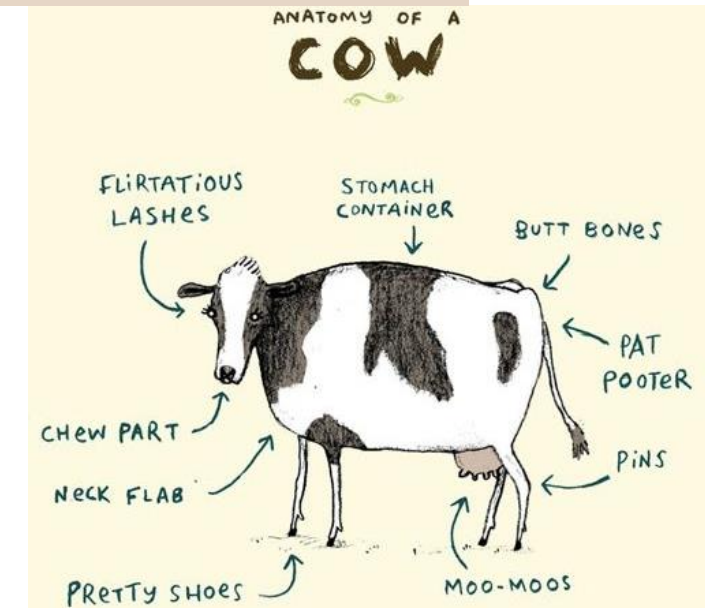 ANATOMY OF A
COW
FLiRTATiOUS
LASHES
STOMACH
CONTAiNER
BUTT BONES
PAT
POOTER
CHEW PART
PiNS
NECK FLAB
PRETTY SHOES
MOO-MOOS